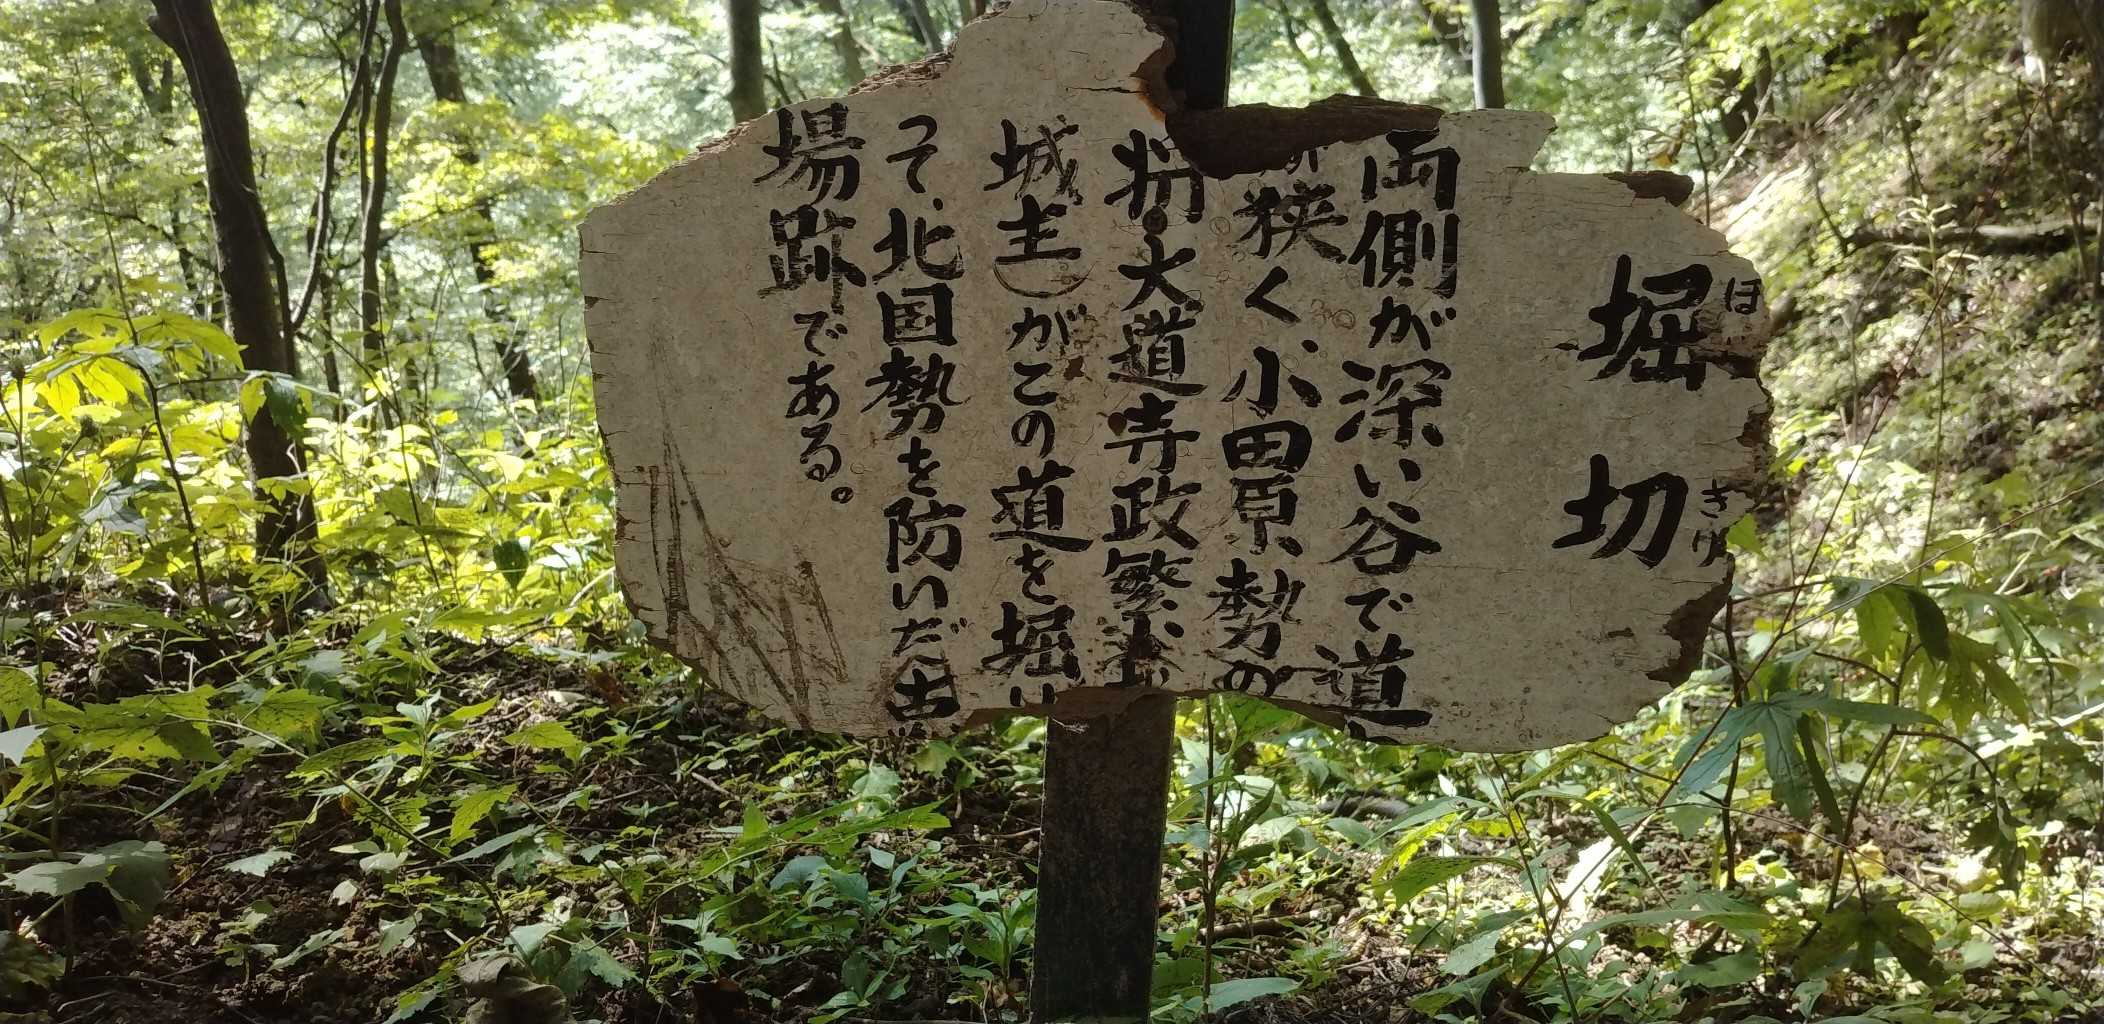 堀切
ほ
きり
両側が深い谷で道
狭く、小田原勢の
将・大道寺政繁
城主)がこの道を堀
って、北国勢を防いだ古
場跡である。